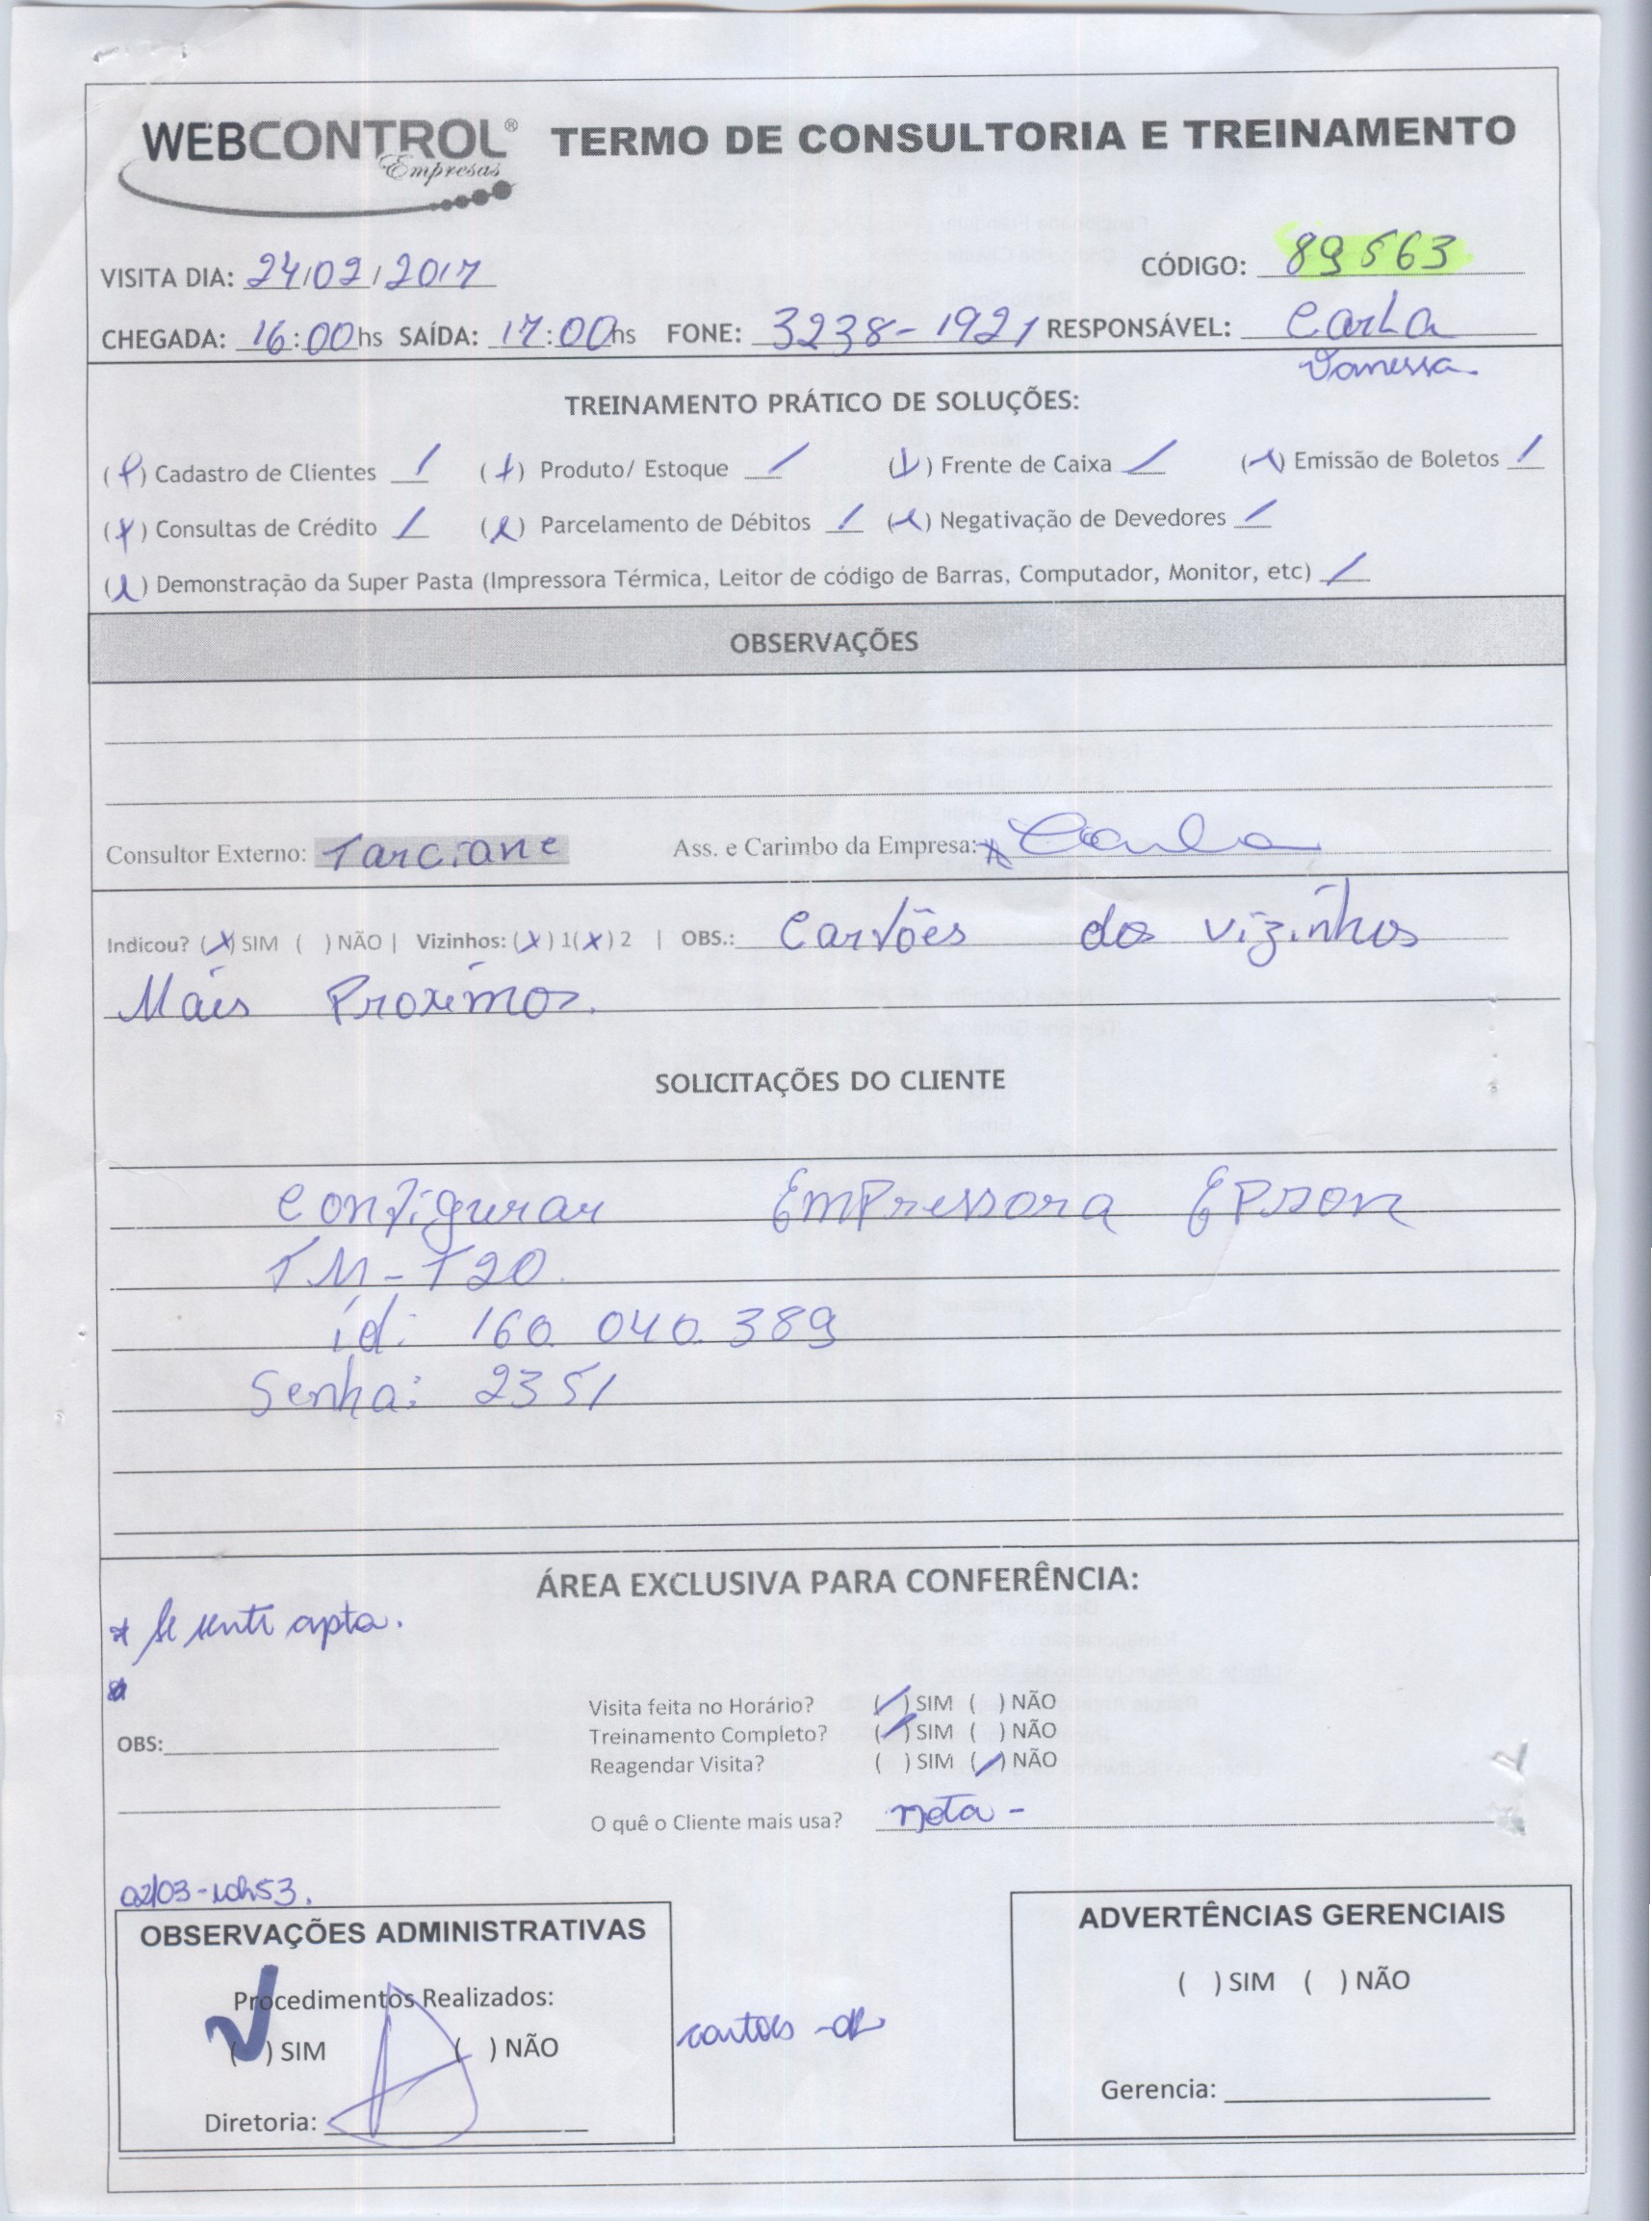 WEBCONTROL® Empresas TERMO DE CONSULTORIA E TREINAMENTO
VISITA DIA: 24/02/2017 CÓDIGO: 89563
CHEGADA: 16:00hs SAÍDA: 17:00hs FONE: 3238-1921 RESPONSÁVEL: Carla
Vanessa.
TREINAMENTO PRÁTICO DE SOLUÇÕES:
(x) Cadastro de Clientes / (x) Produto/ Estoque / (x) Frente de Caixa / (x) Emissão de Boletos /
(x) Consultas de Crédito / (x) Parcelamento de Débitos / (x) Negativação de Devedores /
(x) Demonstração da Super Pasta (Impressora Térmica, Leitor de código de Barras, Computador, Monitor, etc) /
OBSERVAÇÕES
Consultor Externo: Tarciane Ass. e Carimbo da Empresa: x Carla
Indicou? (x) SIM ( ) NÃO | Vizinhos: (x) 1(x) 2 | OBS.: Cartões dos vizinhos
Mais Proximos.
SOLICITAÇÕES DO CLIENTE
Configurar Empressora Epson
TM-T20.
id: 160.040.389
Senha: 2351
ÁREA EXCLUSIVA PARA CONFERÊNCIA:
* Se senti apta.
Visita feita no Horário? (/) SIM ( ) NÃO
Treinamento Completo? (/) SIM ( ) NÃO
OBS:
Reagendar Visita? ( ) SIM (/) NÃO
O quê o Cliente mais usa? nota -
02/03-10h53.
OBSERVAÇÕES ADMINISTRATIVAS
Procedimentos Realizados:
(✓) SIM ( ) NÃO
Diretoria:
cartões -ok
ADVERTÊNCIAS GERENCIAIS
( ) SIM ( ) NÃO
Gerencia: